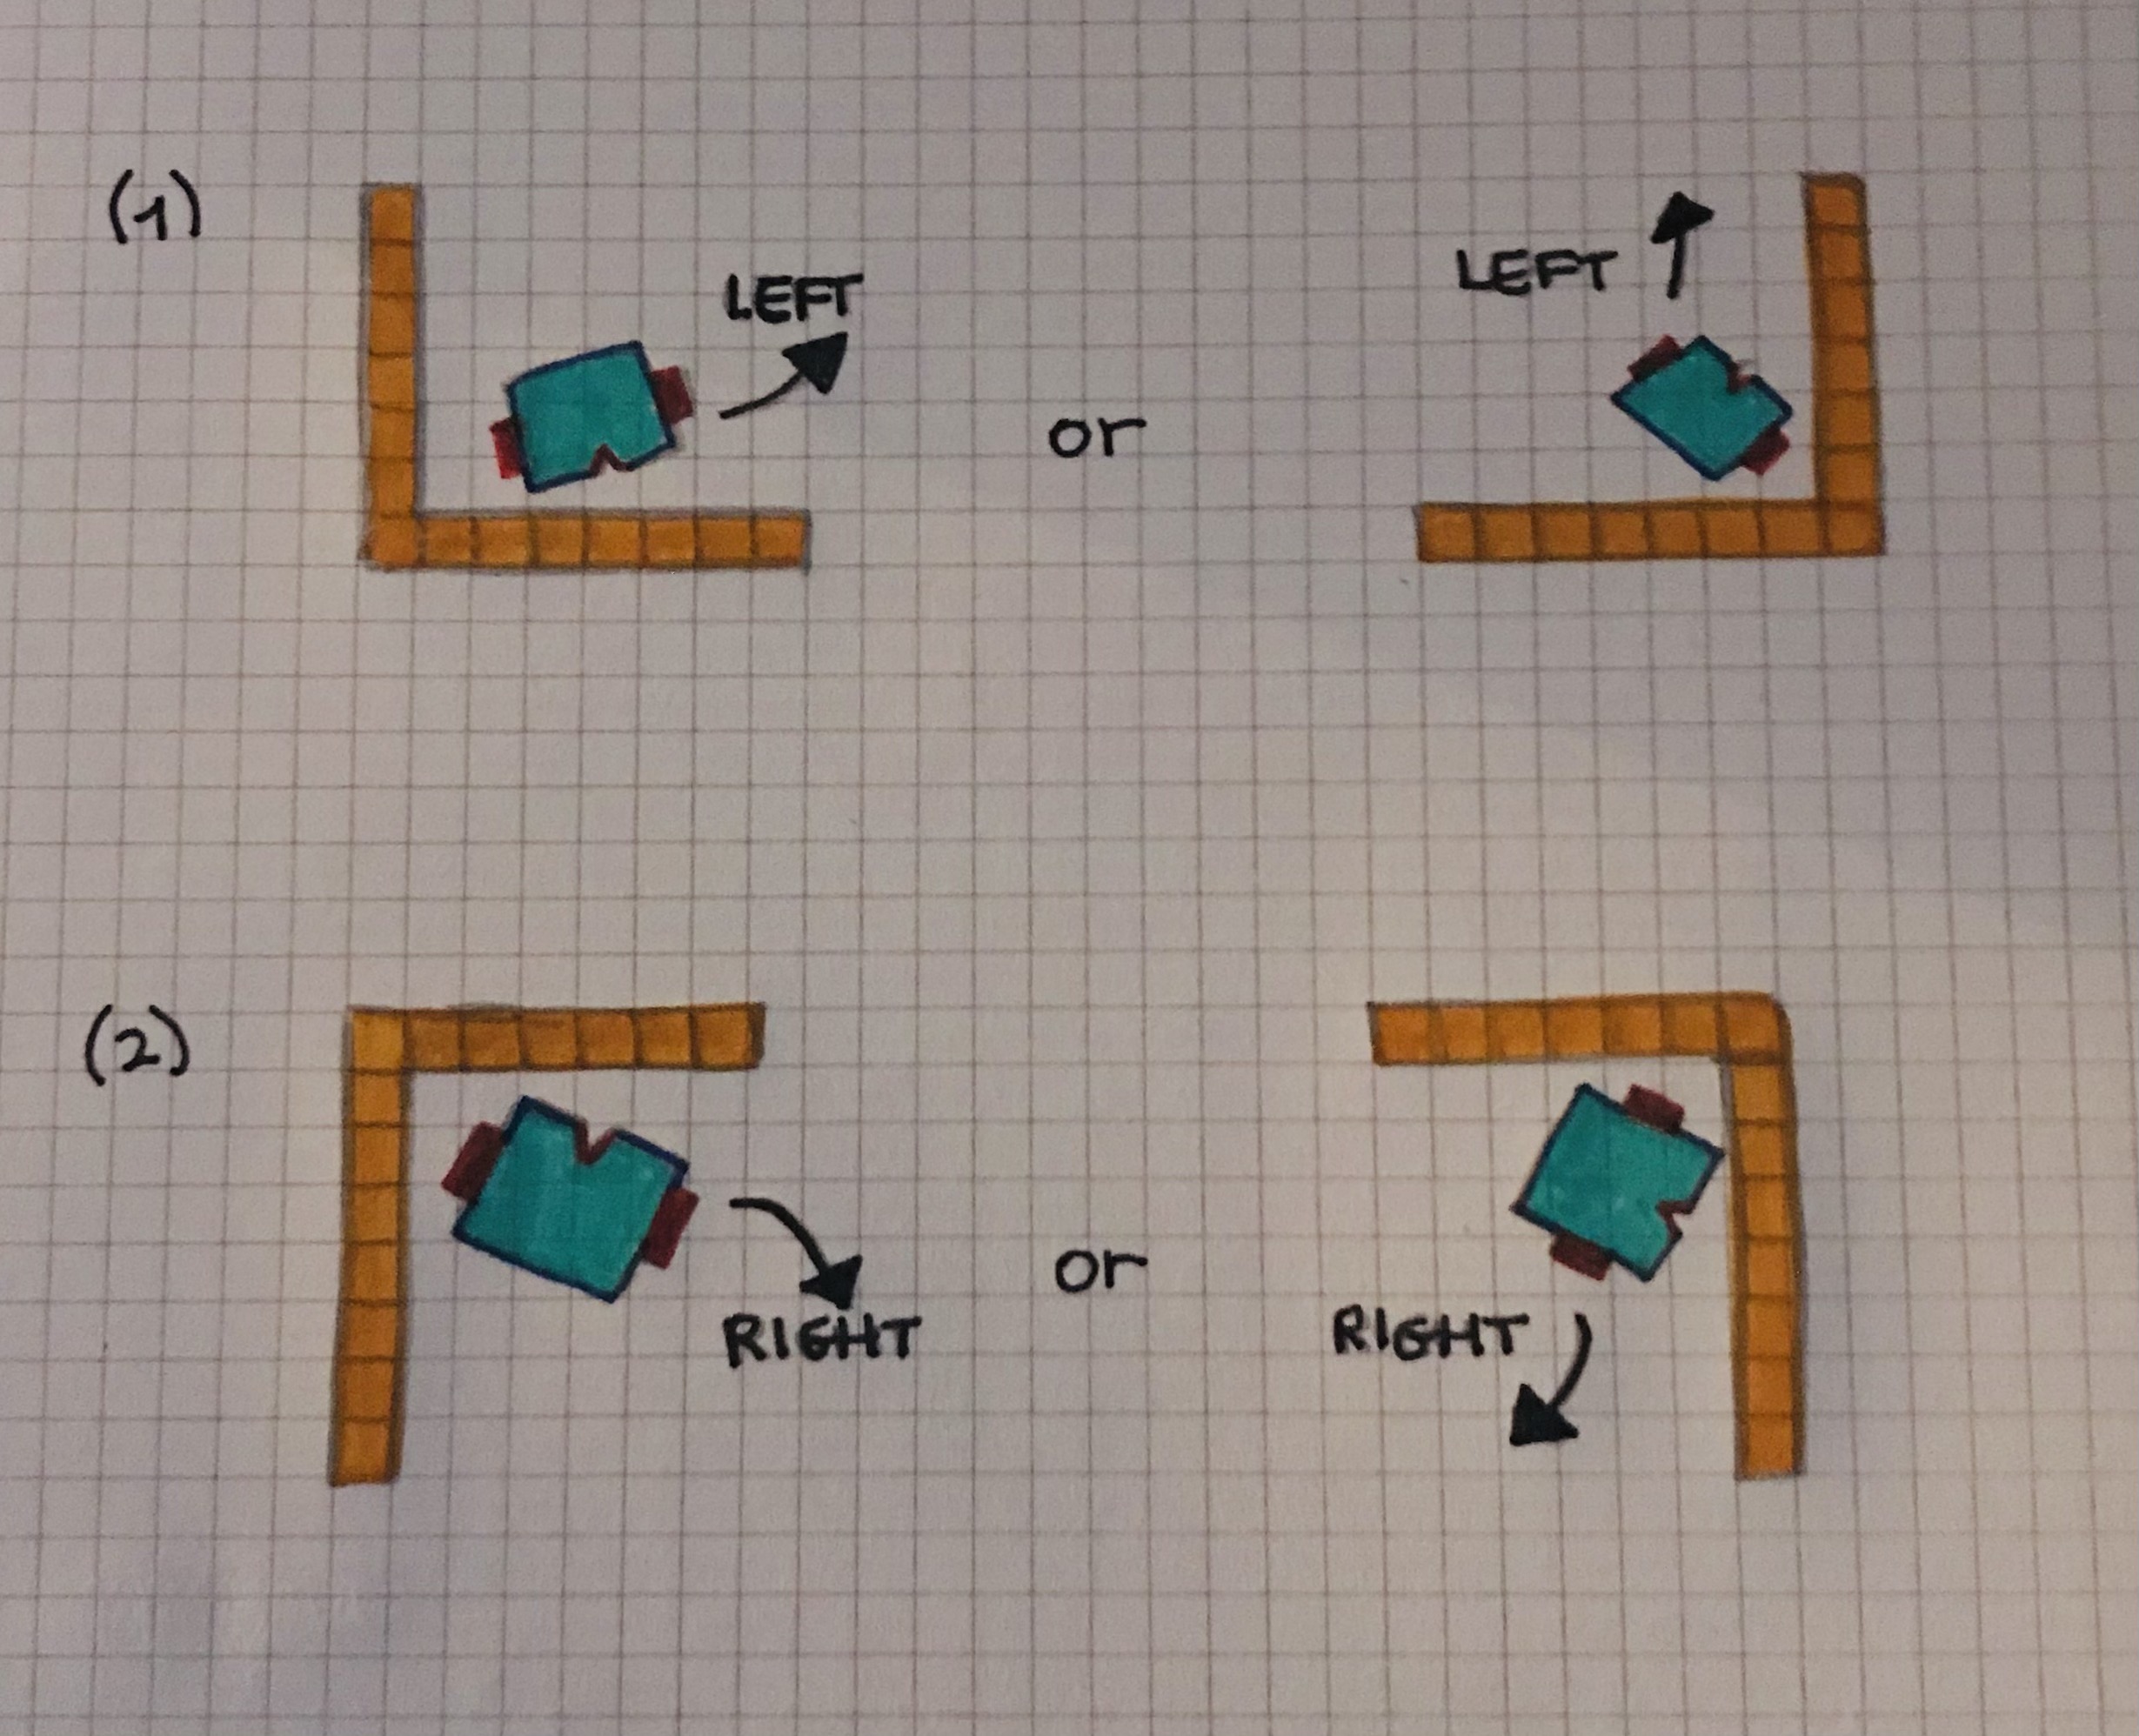 (1)
LEFT
or
LEFT
(2)
or
RIGHT
RIGHT